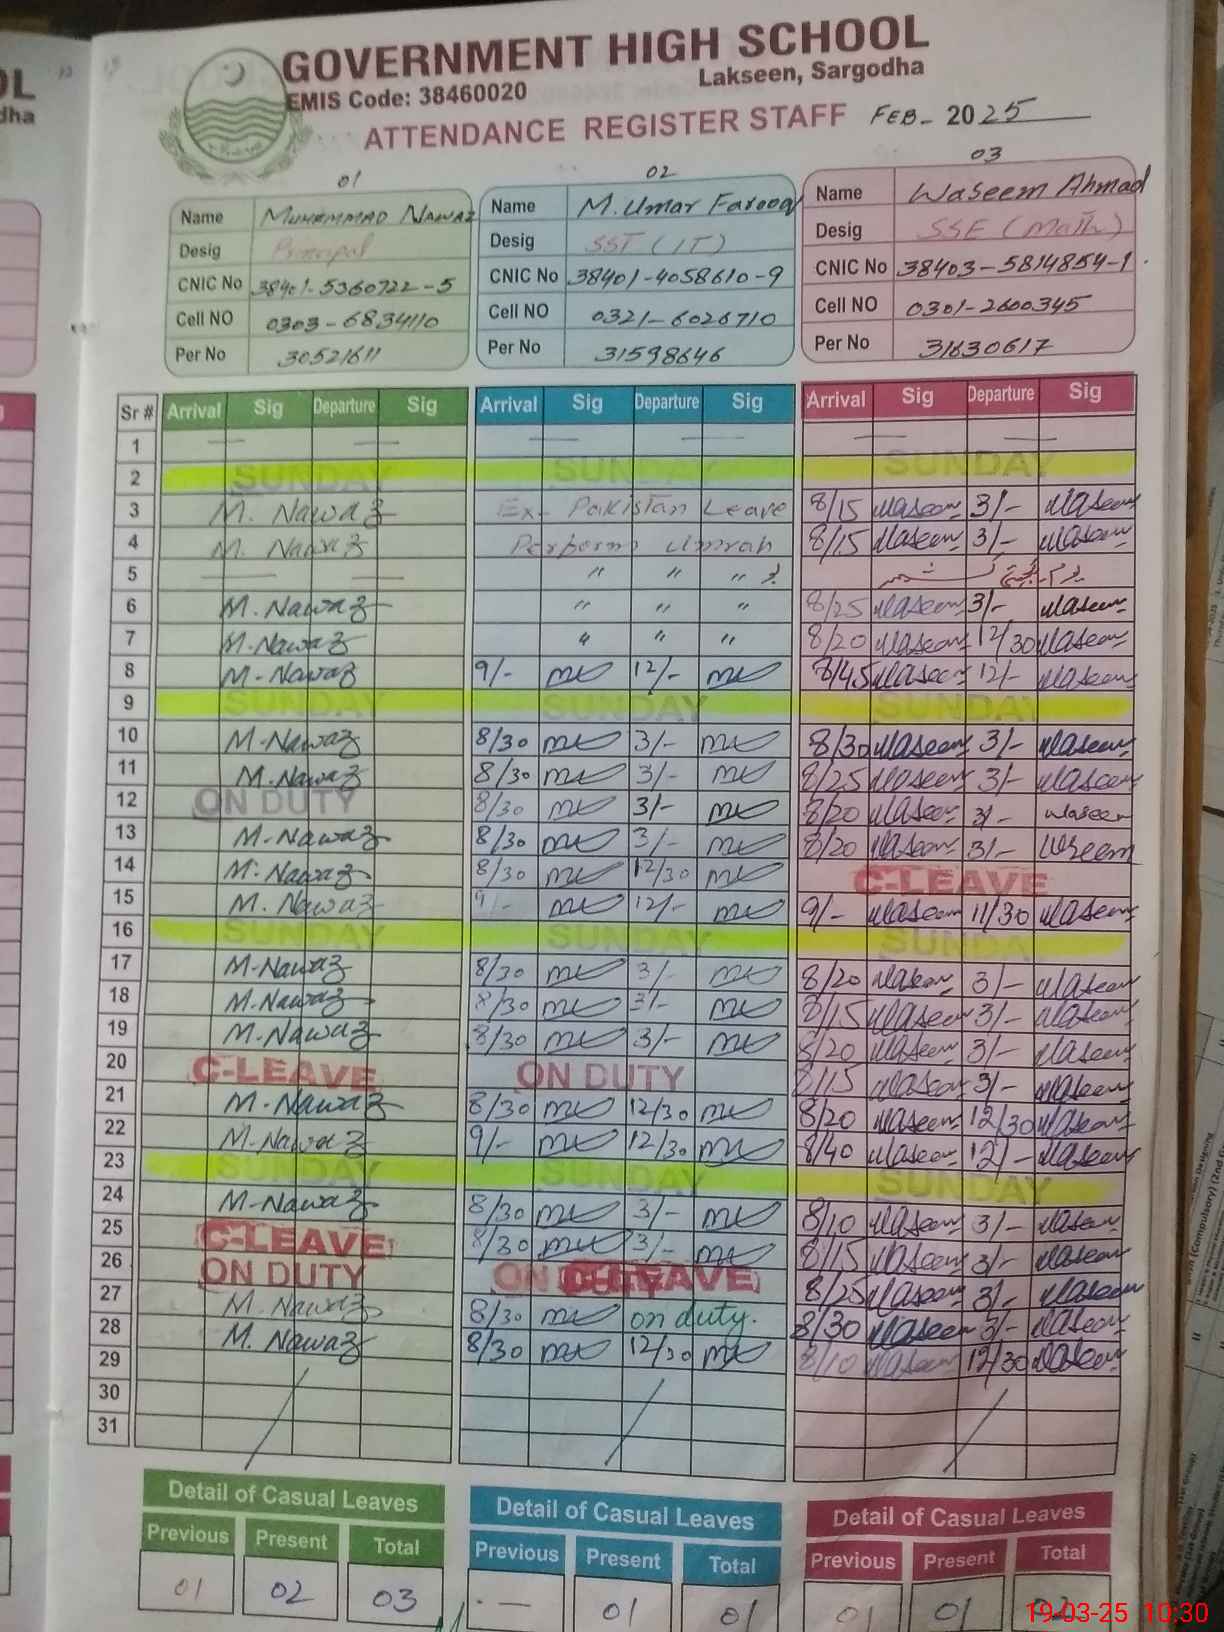 GOVERNMENT HIGH SCHOOL
EMIS Code: 38460020 Lakseen, Sargodha
ATTENDANCE REGISTER STAFF FEB- 2025
01 02 03
Name MUHAMMAD NAWAZ Name M. Umar Farooq Name Waseem Ahmad
Desig Principal Desig SST (IT) Desig SSE (Math)
CNIC No 38401-5360722-5 CNIC No 38401-4058610-9 CNIC No 38403-5814854-1
Cell NO 0303-6834110 Cell NO 0321-6026710 Cell NO 0301-2600345
Per No 30521611 Per No 31598646 Per No 31630617
Sr # Arrival Sig Departure Sig Arrival Sig Departure Sig Arrival Sig Departure Sig
1 — — — — — —
2 SUNDAY SUNDAY SUNDAY
3 M. Nawaz Ex- Pakistan Leave 8/15 Waseem 3/- Waseem
4 M. Nawaz Perform Umrah 8/15 Waseem 3/- Waseem
5 — — " " "
6 M. Nawaz " " " 8/25 Waseem 3/- Waseem
7 M. Nawaz " " " 8/20 Waseem 12/30 Waseem
8 M. Nawaz 9/- 12/- 8/45 Waseem 12/- Waseem
9 SUNDAY SUNDAY SUNDAY
10 M. Nawaz 8/30 3/- 8/30 Waseem 3/- Waseem
11 M. Nawaz 8/30 3/- 8/25 Waseem 3/- Waseem
12 ON DUTY 8/30 3/- 8/20 Waseem 3/- Waseem
13 M. Nawaz 8/30 3/- 8/20 Waseem 3/- Waseem
14 M. Nawaz 8/30 12/30 C-LEAVE
15 M. Nawaz 9/- 12/- 9/- Waseem 11/30 Waseem
16 SUNDAY SUNDAY SUNDAY
17 M. Nawaz 8/30 3/- 8/20 Waseem 3/- Waseem
18 M. Nawaz 8/30 3/- 8/15 Waseem 3/- Waseem
19 M. Nawaz 8/30 3/- 8/20 Waseem 3/- Waseem
20 C-LEAVE ON DUTY 8/15 Waseem 3/- Waseem
21 M. Nawaz 8/30 12/30 8/20 Waseem 12/30 Waseem
22 M. Nawaz 9/- 12/30 8/40 Waseem 12/- Waseem
23 SUNDAY SUNDAY SUNDAY
24 M. Nawaz 8/30 3/- 8/10 Waseem 3/- Waseem
25 C-LEAVE 8/30 3/- 8/15 Waseem 3/- Waseem
26 ON DUTY ON DUTY C-LEAVE 8/25 Waseem 3/- Waseem
27 M. Nawaz 8/30 on duty. 8/30 Waseem 3/- Waseem
28 M. Nawaz 8/30 12/30 8/10 Waseem 12/30 Waseem
29
30
31
Detail of Casual Leaves Detail of Casual Leaves Detail of Casual Leaves
Previous Present Total Previous Present Total Previous Present Total
01 02 03 — 01 01 01 01
19-03-25 10:30